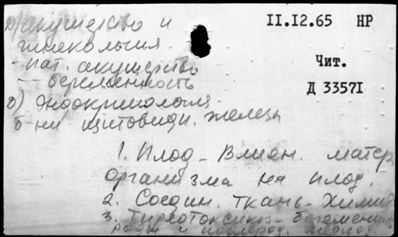 акушерство и 11.12.65 НР
гинекология.
- пат. акушерство Чит.
- беременность Д 33571
2) Эндокринология
б-ни щитовидн. железы
1. Плод - Влиян. матер.
организма на плод.
2. Соедин. ткань - Химия
3. Тиреотоксикоз - беременн.
роды и послерод. период.